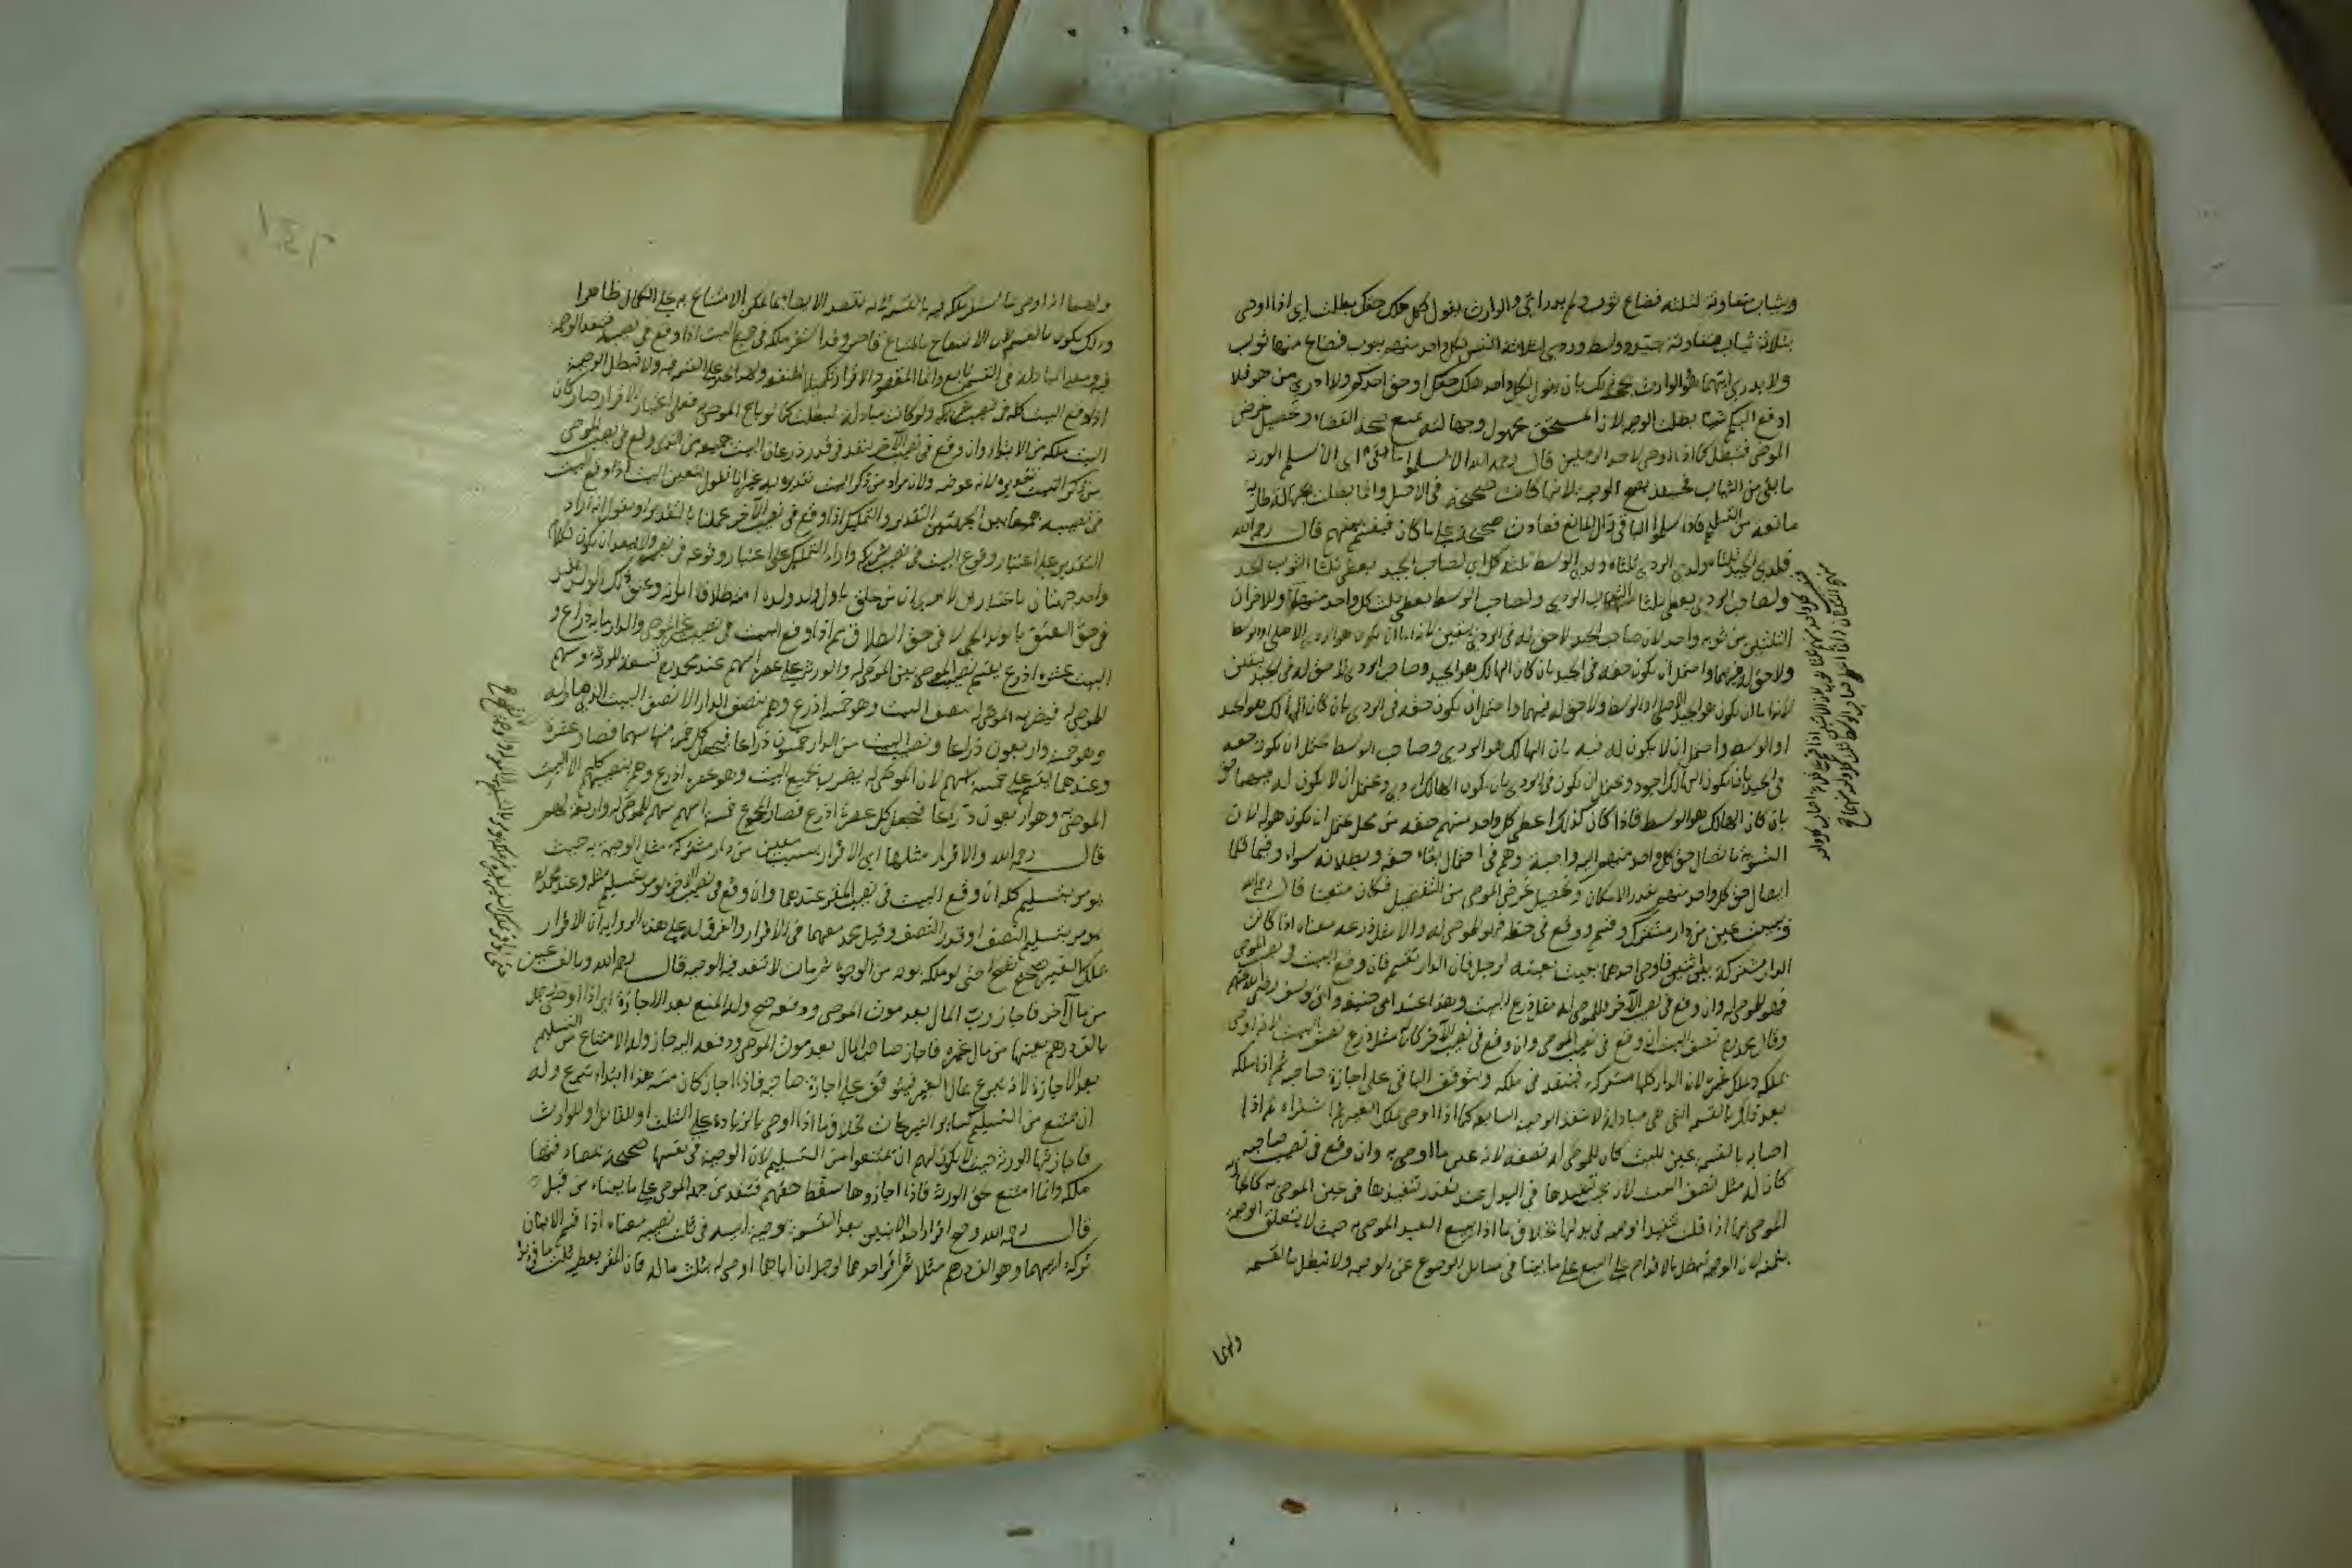 وبثياب متفاوتة لثلثة فضاع ثوب ولم يدر اي والوارث يقول لكل هلك حقك بطلت اي اذا اوصى
بثلاثة ثياب متفاوتة جيد ووسط وردي لثلاثة انفس لكل واحد منهم بثوب فضاع منها ثوب
ولا يدرى ايهما هو والوارث يجحد ذلك بان يقول لكل واحد هلك حقك او حق احدكم ولا ادري من هو فلا
ادفع اليكم شيا بطلت الوصية لان المستحق مجهول وجهالته تمنع صحة القضاء وتحصيل غرض
الموصي فتبطل كما اذا اوصى لاحد الرجلين قال رحمه الله الا ان يسلموا ما بقي اي الا ان يسلم الورثة
ما بقي من الثياب فحينئذ تصح الوصية لانها كانت صحيحة في الاصل وانما بطلت بجهالة طارية
مانعة من التسليم فاذا سلموا الباقي زال المانع فعادت صحيحة على ما كان فيقسم بينهم قال رحمه الله
فلذي الجيد ثلثاه ولذي الردي ثلثاه ولذي الوسط ثلث كل اي لصاحب الجيد يعطى ثلثا الثوب الجيد
ولصاحب الردي يعطى ثلثا الثوب الردي ولصاحب الوسط يعطى ثلث كل واحد منهما وللاخران
الثلثين من ثوب واحد لان صاحب الجيد لا حق له في الردي بيقين لانه اما ان يكون هو الردي الاصلي او الوسط
ولا حق له فيهما واحتمل ان يكون حقه في الجيد بان كان الهالك هو الجيد وصاحب الردي لا حق له في الجيد بيقين
لانه اما ان يكون هو الجيد الاصلي او الوسط ولا حق له فيهما واحتمل ان يكون حقه في الردي بان كان الهالك هو الجيد
او الوسط واحتمل ان لا يكون له فيه بان الهالك هو الردي وصاحب الوسط يحتمل ان يكون حقه
في الجيد بان يكون الهالك اجود ويحتمل ان يكون في الردي بان يكون الهالك اردى ويحتمل ان لا يكون له فيهما حق
بان كان الهالك هو الوسط فاذا كان كذلك اعطي كل واحد منهم حقه من محل يحتمل ان يكون هو له لان
التسوية بايصال حق كل واحد منهم اليه واجبة وهم في احتمال بقاء حقه وبطلانه سواء وفيما قلنا
ايصال حق كل واحد منهم بقدر الامكان وتحصيل غرض الموصي من التفضيل فكان متعينا قال رحمه الله
وببيت عين من دار مشتركة وقسم ووقع في حظه فهو للموصى له والا مثل ذرعه معناه اذا كانت
الدار مشتركة بين اثنين فاوصى احدهما ببيت بعينه لرجل فان الدار تقسم فان وقع البيت في نصيب الموصي
فهو للموصى له وان وقع في نصيب الآخر فللموصى له مثل ذرع البيت وهذا عند ابي حنيفة وابي يوسف رضي الله عنهم
وقال محمد له نصف البيت ان وقع في نصيب الموصي وان وقع في نصيب الآخر كان له مثل ذرع نصف البيت لانه اوصى
بملكه وملك غيره لان الدار كلها مشتركة فينفذ في ملكه ويتوقف الباقي على اجازة صاحبه ثم اذا ملكه
بعد ذلك بالقسمة التي هي مبادلة لا تنفذ الوصية السابقة كما اذا اوصى بملك الغير ثم اشتراه ثم اذا
اصابه بالقسمة عين البيت كان للموصى له نصفه لانه عين ما اوصى به وان وقع في نصيب صاحبه
كان له مثل نصف البيت لانه يجب تنفيذها في البدل عند تعذر تنفيذها في عين الموصى به كالجارية
الموصى بها اذا قتلت تنفذ الوصية في بدلها بخلاف ما اذا بيع العبد الموصى به حيث لا يتعلق الوصية
بثمنه لان الوصية تبطل بالاقدام على البيع على ما بينا في مسايل الرجوع عن الوصية ولا تبطل بالقسمة
ولهما
ولهما انه اوصى بما يستقر ملكه فيه بالقسمة لانه يقصد الايصاء بما يمكن الانتفاع به على الكمال ظاهرا
وذلك يكون بالقسمة لان الانتفاع بالمشاع قاصر وقد استقر ملكه في جميع البيت اذا وقع في نصيبه فتنفذ الوصية
فيه ومعنى المبادلة في القسمة تابع وانما المقصود الافراز تكميلا للمنفعة ولهذا يجبر على القسمة فيه ولا تبطل الوصية
اذا وقع البيت كله في نصيب شريكه ولو كانت مبادلة لبطلت كما لو باع الموصى به فعلى اعتبار الافراز صار كان
البيت ملكه من الابتداء وان وقع في نصيب الآخر ينفذ في قدر ذرعان البيت جميعه من الذي وقع في نصيب الموصي
في نصيبه جمعا بين الجهتين التقدير والتمليك اذا وقع في نصيب الآخر عملنا بالتقدير او نقول انه اراد
التقدير على اعتبار وقوع البيت في نصيب شريكه واراد التمليك على اعتبار وقوعه في نصيبه ولا يبعد ان يكون لكلام
واحد جهتان باعتبارين الا يرى ان من علق باول ولد تلده امته طلاق امرانه وعتق ذلك الولد يتقيد
في حق العتق بالولد الحي لا في حق الطلاق ثم اذا وقع البيت في نصيب غير الموصي والدار ماية ذراع و
البيت عشرة اذرع يقسم نصيب الموصي بين الموصى له والورثة على عشرة اسهم عند محمد تسعة للورثة وسهم
للموصى له فيضرب الموصى له بنصف البيت وهو خمسة اذرع وهم بنصف الدار الا نصف البيت الذي صار له
وهو خمسة واربعون ذراعا ونصف البيت من الدار خمسون ذراعا فيجعل كل خمسة منها سهما فصار عشرة
وعندهما يقسم على خمسة اسهم لان الموصى له يضرب بجميع البيت وهو عشرة اذرع وهم بنصيبهم كله الا البيت
الموصى به وهو اربعون ذراعا فيجعل كل عشرة اذرع فصار المجموع خمسة اسهم سهم للموصى له واربعة لهم
قال رحمه الله والاقرار مثلها اي الاقرار ببيت معين من دار مشتركة مثل الوصية به حيث
يومر بتسليم كله ان وقع البيت في نصيب المقر عندهما وان وقع في نصيب الآخر يومر بتسليم مثله وعند محمد
يومر بتسليم النصف او قدر النصف وقيل محمد معهما في الاقرار والفرق له على هذه الرواية ان الاقرار
بملك الغير صحيح حتى لو ملكه بوجه من الوجوه ثم مات لا تنفذ فيه الوصية قال رحمه الله وبالف عين
من مال آخر فاجاز رب المال بعد موت الموصي ودفعه صح وله المنع بعد الاجازة اي اذا اوصى لرجل
بالف درهم بعينها من مال غيره فاجاز صاحب المال بعد موت الموصي ودفعه اليه جاز وله الامتناع من التسليم
بعد الاجازة لانه تبرع بمال الغير فيتوقف على اجازة صاحبه فاذا اجاز كان منه هذا ابتداء تبرع وله
ان يمتنع من التسليم كساير التبرعات بخلاف ما اذا اوصى بالزيادة على الثلث او للقاتل او للوارث
فاجازتها الورثة حيث لا يكون لهم ان يمتنعوا من التسليم لان الوصية في نفسها صحيحة لمصادفتها
ملكه وانما امتنع لحق الورثة فاذا اجازوها سقط حقهم فتنفذ من جهة الموصي على ما بيناه من قبل
قال رحمه الله وصح اقرار احد الابنين بعد القسمة بوصية ابيه في ثلث نصيبه معناه اذا قسم الابنان
تركة ابيهما وهو الف درهم مثلا ثم اقر احدهما لرجل ان اباهما اوصى له بثلث ماله فان المقر يعطيه ثلث ما في يده